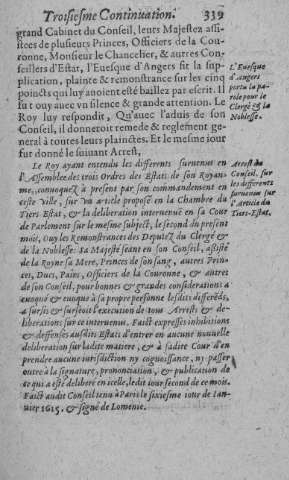 Troisiesme Continuation. 339
grand Cabinet du Conseil, leurs Majestez assi-
stees de plusieurs Princes, Officiers de la Cou-
ronne, Monsieur le Chancelier, & autres Con-
seillers d'Estat, l'Euesque d'Angers fit la sup-
plication, plainte & remonstrance sur les cinq
poincts qui luy anoient esté baillez par escrit. Il
fut ouy auec vn silence & grande attention. Le
Roy luy respondit, Qu'auec l'aduis de son
Conseil, il donneroit remede & reglement ge-
neral à toutes leurs plainctes. Et le mesme iour
fut donné le suiuant Arrest,
L'Euesque
d'Angers
porta la pa-
role pour le
Clergé & la
Noblesse.
Le Roy ayant entendu les differents suruenus en
l'Assemblee des trois Ordres des Estats de son Royau-
me, conuoquez à present par son commandement en
ceste Ville, sur vn article proposé en la Chambre du
Tiers Estat, & la deliberation interuenuë en sa Cour
de Parlement sur le mesme subject, le second du present
mois, Ouy les Remonstrances des Deputez du Clergé &
de la Noblesse: Sa Majesté seant en son Conseil, assisté
de la Royne sa Mere, Princes de son sang, autres Prin-
ces, Ducs, Pairs, Officiers de la Couronne, & autres
de son Conseil, pour bonnes & grandes considerations a
euoqué & euoque à sa propre personne lesdits differẽds,
a sursis & surseoit l'execution de tous Arrests & de-
liberations sur ce interuenus. Faict expresses inhibitions
& deffenses ausdits Estats d'entrer en aucune nouuelle
deliberation sur ladite matiere, & à sadite Cour d'en
prendre aucune iurisdiction ny cognoissance, ny passer
outre à la signature, prononciation, & publication de
ce qui a esté deliberé en icelle, ledit iour second de ce mois.
Faict audit Conseil tenu à Paris le sixiesme iour de Ian-
uier 1615. & signé de Lomenie.
Arrest du
Conseil, sur
les differents
suruenus sur
l'Article du
Tiers-Estat.